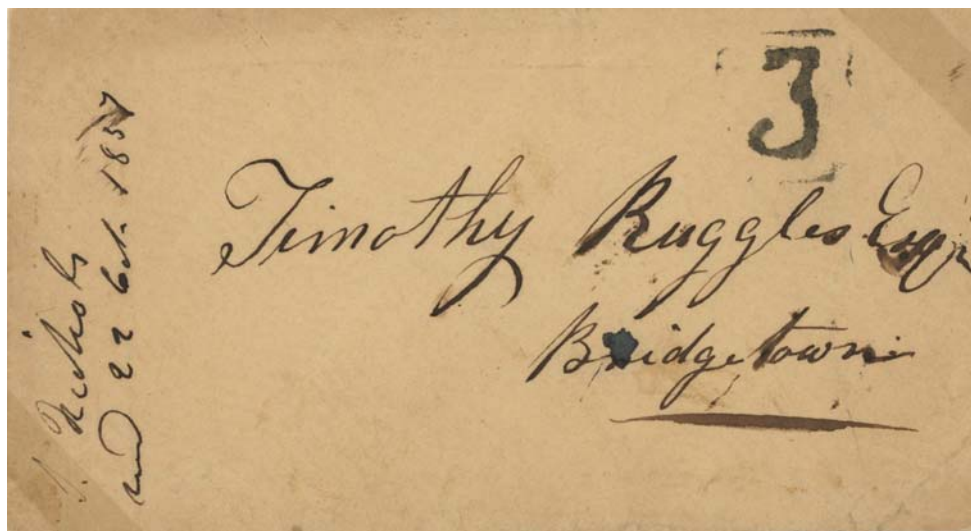 3
Timothy Ruggles Esq
Bridgetown
Nichols
22 Oct. 1857